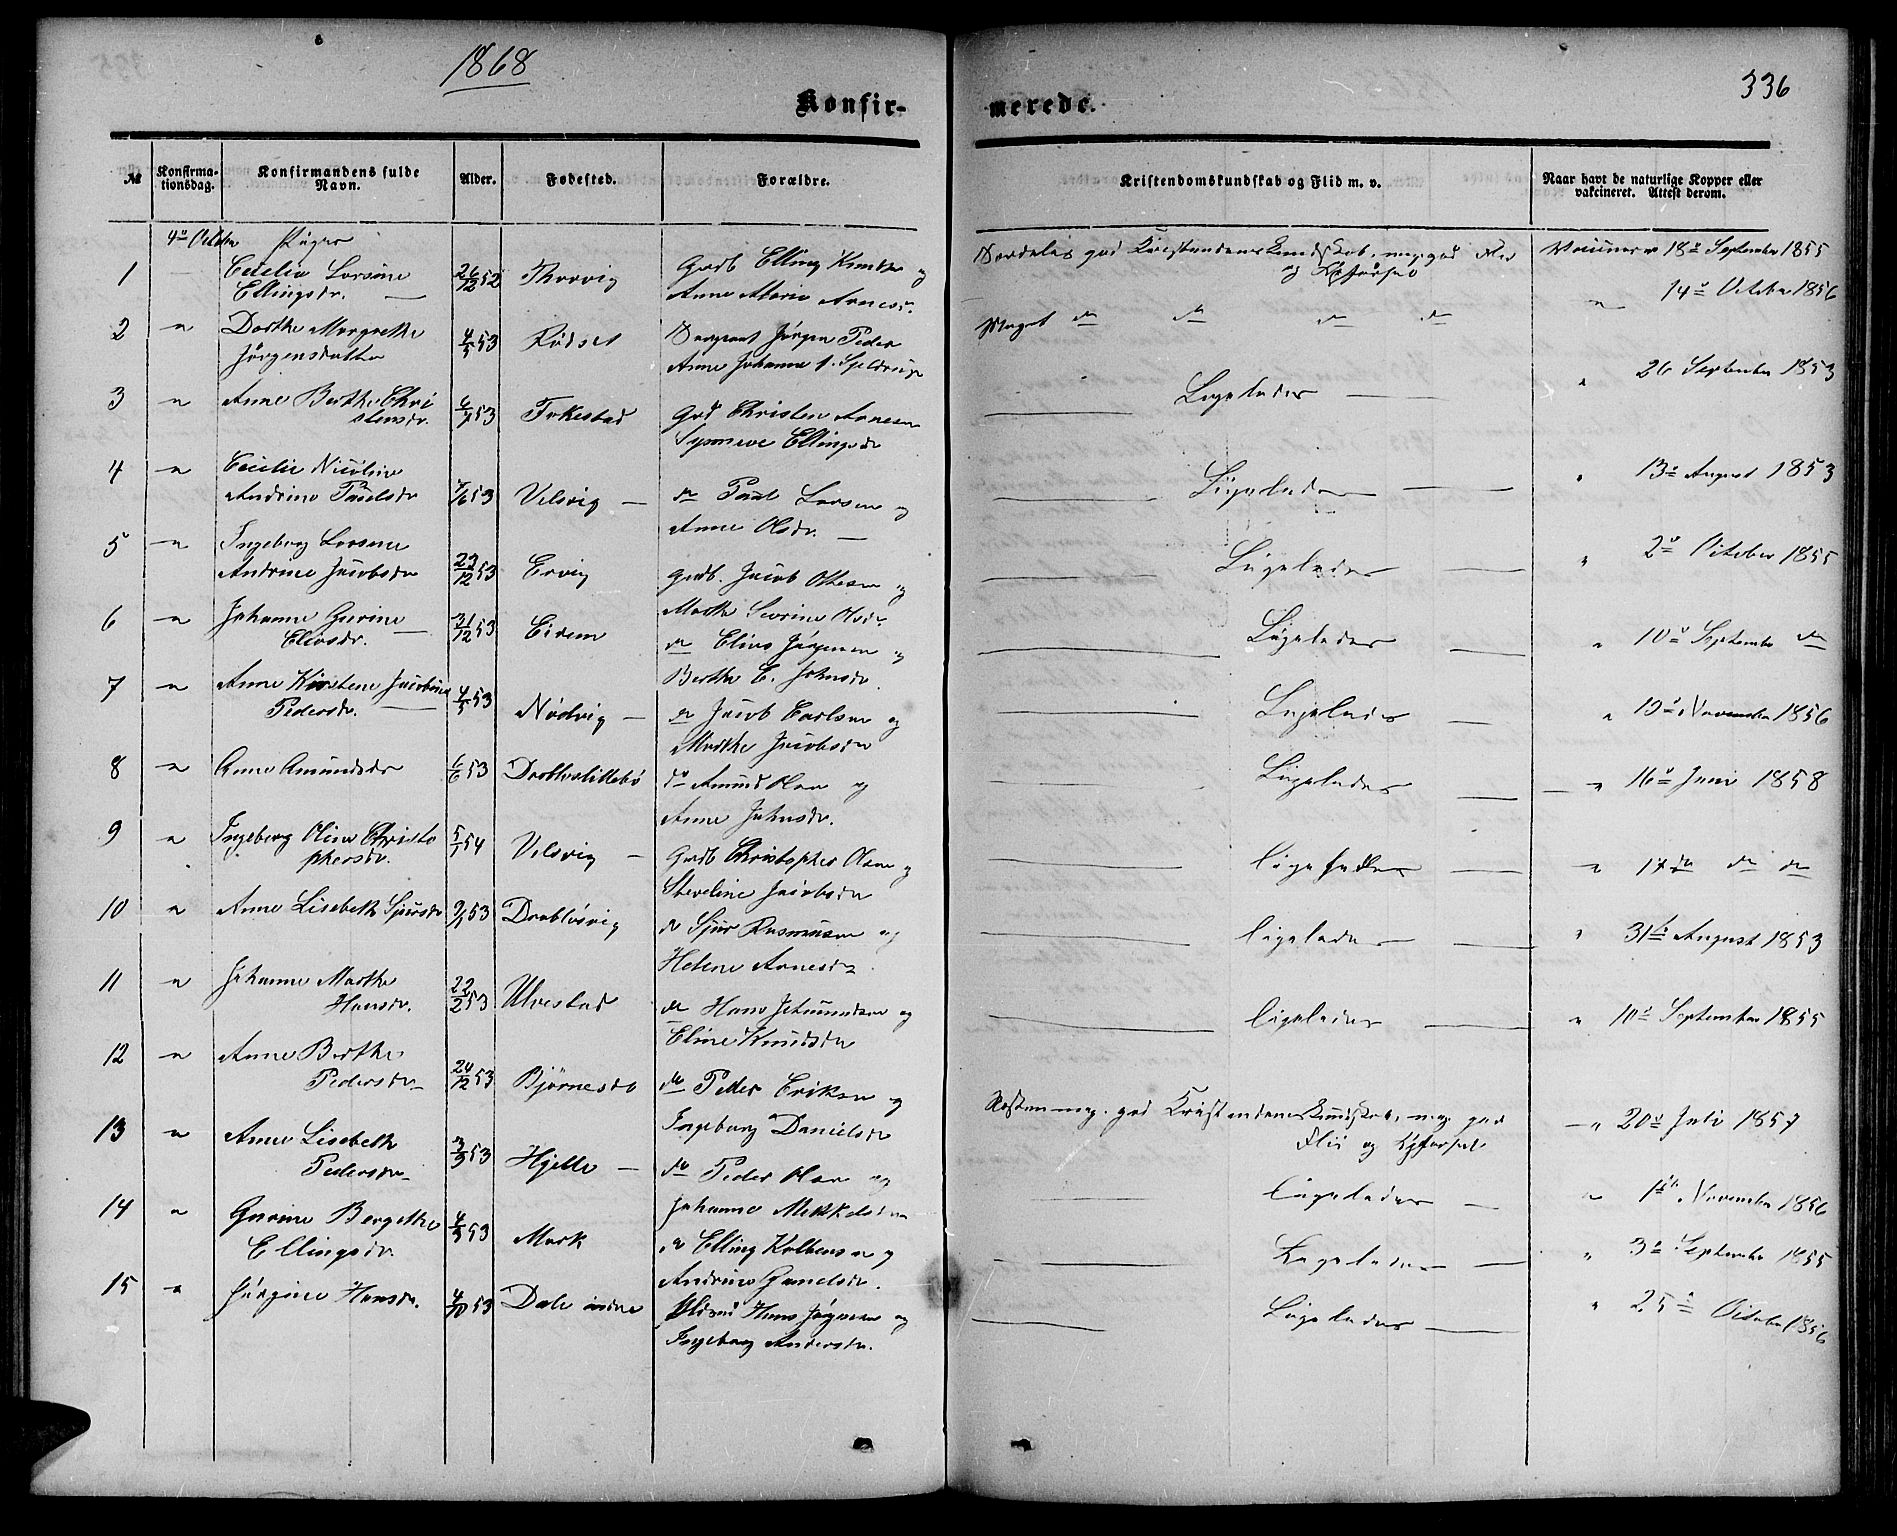 1868
336
Konfir-
merede.
№
Konfirma-
tionsdag.
Konfirmandens fulde
Navn.
Alder.
Fødested.
Forældre.
Kristendomskundskab og Flid m. v.
Naar havt de naturlige Kopper eller
vakcineret. Attest derom.
4de October Piger
1 Cecelie Larsine
Ellingsdr. 26/12 52 Elling Knudsen og
Anne Marie Arnesdr.
18de September 1855
2 " Dorthe Margrethe
Jørgensdatter 4/5 53 Rødset Sergeant Jørgen Peder
Anne Johanne
Meget do do do do " 14de October 1856
3 " Anne Berthe Chri
stensdr. 53 Christen Arnesen
Synneve Ellingsdr
Ligeledes " 26 September 1853
4 " Cecilie Nicoline
Andrine Paulsdr 53 Velsvig do Paul Larsen og
Anne Olsdr.
Ligeledes " 13de August 1853
5 " Ingeborg Larsine
Andrine Jacobsdr 22/12 53 Ervig Gdb. Jacob Ottesen og
Marthe Severine Olsdr.
Ligeledes " 2de October 1855
6 " Johanne Gurine
Eliasdr. 31/12 53 Eirem do Elias Jørgensen og
Berthe E. Johnsdr.
Ligeledes " 10de September do
7 " Anne Kirstene Jacobine
Pedersdr. 4/5 53 Nødvig do Jacob Carlsen og
Marthe Jacobsdr
Ligeledes " 13de November 1856
8 " Anne Amundsdr 6/6 53 do Amund Olsen og
Anne Johnsdr.
Ligeledes " 16de Juni 1858
9 " Ingeborg Oline Christo
phersdr. 5/1 54 Velsvig Gdb Christopher Olsen og
Steveline Jacobsdr
Ligeledes " 17de do do
10 " Anne Lisebeth Sjursdr 53 Drabløsvig do Sjur Rasmussen og
Helene Arnesdr
Ligeledes " 31te August 1853
11 " Johanne Marthe
Hansdr. 22/2 53 Ulvestad do Hans Jetmundsen og
Eline Knudsdr
Ligeledes " 10de September 1855
12 " Anne Berthe
Pedersdr 24/12 53 Bjørnesdo do Peder Eriksen og
Ingeborg Danielsdr
Næsten meg. god Kristendomskundskab, meg. god
Flid og Opførsel " 20de Juli 1857
13 " Anne Lisebeth
Pedersdr 53 Hjelle do Peder Olsen og
Johanne Mikkelsdr
Ligeledes " 1ste November 1856
14 " Gurine Bergethe
Ellingsdr. 53 Mork do Elling Kolbensen og
Andrine
Ligeledes " 3de September 1855
15 " Jørgine Hansdr. 4/10 53 Dale indre Hans Jørgensen og
Ingeborg Andersdr.
Ligeledes " 25de October 1856